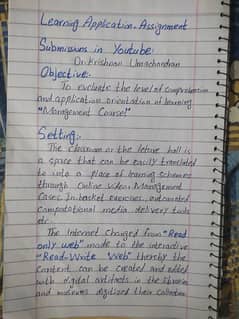 Learning Application - Assignment
Submissions in Youtube:-
Dr. Krishnan Umachandran
Objective:-
To evaluate the level of comprehension
and application orientation of learning
"Management Course"
Setting:-
The classroom or the lecture hall is
a space that can be easily translated
to into a place of learning schemes
through Online videos, Management
Cases, In basket exercises, automated
Computational media delivery tools
etc.
The Internet changed from "Read
only web" made to the interactive
"Read-Write Web" thereby the
content can be created and edited
with digital artifacts in the libraries
and museums digitized their collection